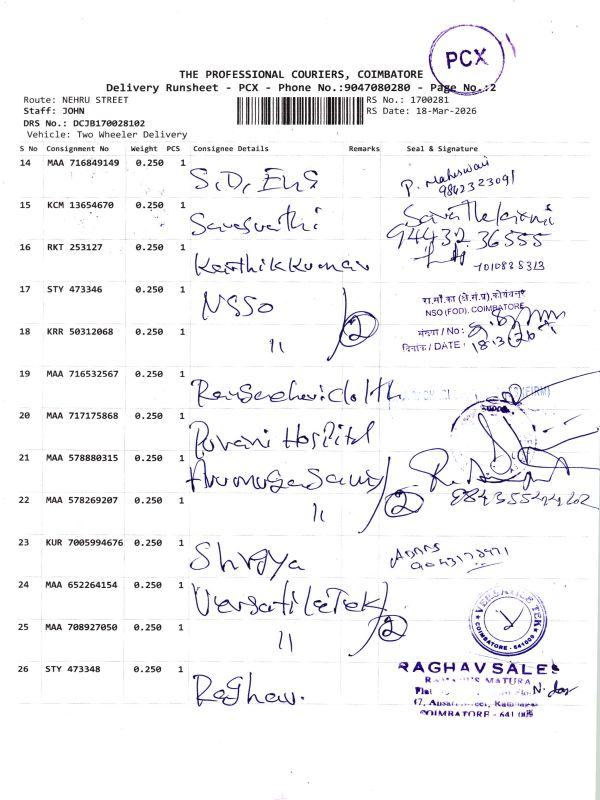 PCX
THE PROFESSIONAL COURIERS, COIMBATORE
Delivery Runsheet - PCX - Phone No.:9047080280 - Page No.:2
Route: NEHRU STREET
RS No.: 1700281
Staff: JOHN
RS Date: 18-Mar-2026
DRS No.: DCJB170028102
Vehicle: Two Wheeler Delivery
S No Consignment No Weight PCS Consignee Details Remarks Seal & Signature
14 MAA 716849149 0.250 1 S.D. EnS P. Maheswari
9842323091
15 KCM 13654670 0.250 1 Sarasvathi
94432 36555
16 RKT 253127 0.250 1 Karthikkumar
7010838313
17 STY 473346 0.250 1 NSSO 2 रा.सां.का (क्षे.सं.प्र), कोयंबत्तूर
NSO (FOD), COIMBATORE
संख्या / No:
18 KRR 50312068 0.250 1 11 दिनांक / DATE: 18/3/26
19 MAA 716532567 0.250 1
20 MAA 717175868 0.250 1 Purani Hospital
21 MAA 578880315 0.250 1 ArumugaSamy
22 MAA 578269207 0.250 1 11 2
23 KUR 7005994676 0.250 1 Shreya
24 MAA 652264154 0.250 1 VersatileTek VERSATILE TEK
COIMBATORE - 641009
25 MAA 708927050 0.250 1 11 2
26 STY 473348 0.250 1 Raghav. RAGHAV SALES
COIMBATORE - 641